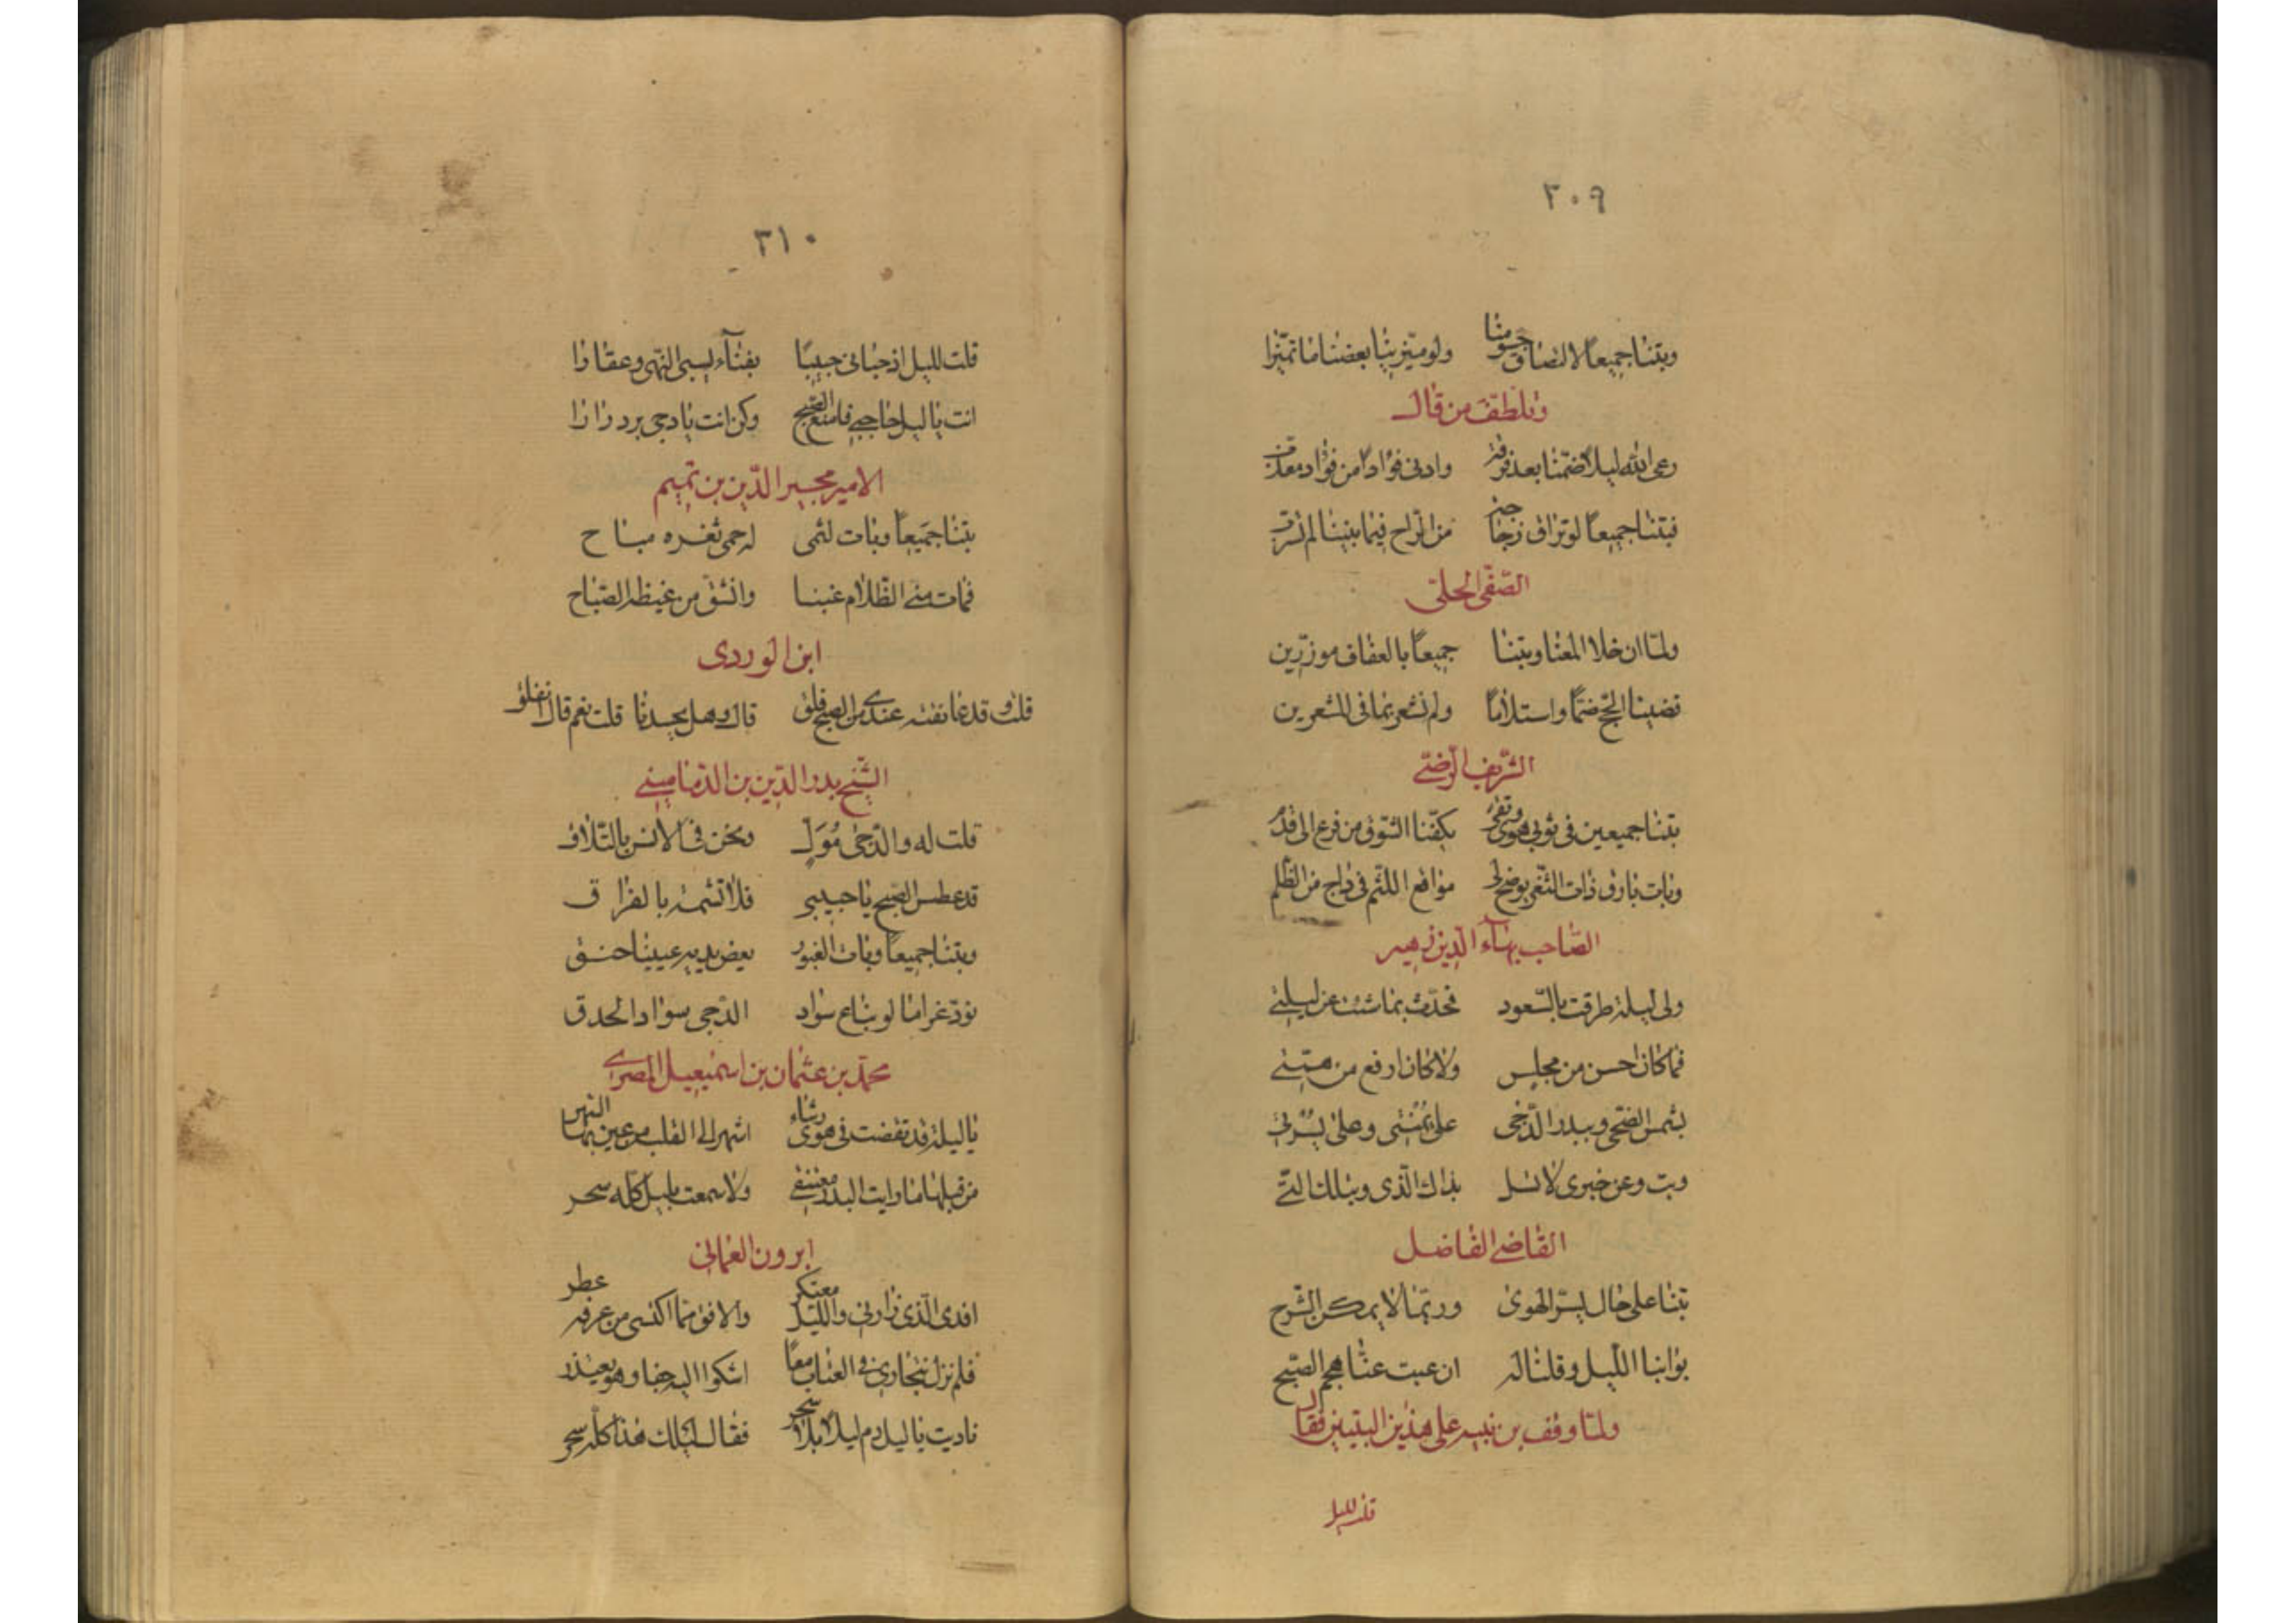 ٣٠٩
وبتنا جميعًا لالتصاق جسومنا ولو ميّز بينا بعضنا ما تميّزا
وتلطّف من قال
رعى الله ليلا ضمّنا بعد فرقة وادنى فؤادًا من فؤاد معذّب
فبتنا جميعًا لو تراق زجاجة من الراح فيما بيننا لم تسرّب
الصّفى الحلى
ولمّا ان خلا المغنا وبتنا جميعًا بالعفاف موزّرين
قضينا الحج ضمًّا واستلامًا ولم نشعر بما فى المشعرين
الشّريف الرّضىّ
بتنا جميعين فى ثوبى هوى وتقى يلفّنا الشّوق من فرع الى قدم
وبات بارق ذات الثّغر يوضح لى مواقع اللثم فى داج من الظّلم
الصّاحب بهآء الدّين زهير
ولى ليلة طرقت بالسّعود فحدّث بما شئت عن ليلتى
فما كان احسن من مجلس ولا كان ارفع من همّتى
بشمس الضّحى وببدر الدّجى على يمنتى وعلى يسرتى
وبت وعن خبرى لا تسل بذاك الّذى وبتلك الّتى
القاضى الفاضل
بتنا على حال يسرّ الهوى وربّما لا يمكن الشّرح
بوّابنا اللّيل وقلنا له ان غبت عنّا هجم الصّبح
ولمّا وقف بن نبيه على هذين البيتين فقال
قلت لليل
٣١٠
قلت لليل اذ حبانى حبيبًا بغنآء يسبى النّهى وعقارا
انت يا ليل حاجبى فامنع الصّبح وكن انت يا دجى برد دارا
الامير مجير الدّين بن تميم
بتنا جميعًا وبات لثمى له حمى ثغره مباح
فمات منى الظّلام غبنا وانشقّ من غيظه الصّباح
ابن الوردى
قلت وقد عانقته عندى من الصبح قلق قال وهل يحسدنا قلت نعم قال انفلق
الشّيخ بدر الدّين بن الدّمامينى
قلت له والدّجى مُوَلٍّ ونحن فى الانس بالتّلاق
قد عطس الصّبح يا حبيبى فلا تشمته بالفراق
وبتنا جميعًا وبات الغيور يعض يديه علينا حنق
نودّ غراما لو يباع سواد الدّجى بسواد الحدق
محمّد بن عثمان بن اسمعيل المصرى
يا ليلة قد تقضت فى هوى رشاء اشهى الى القلب من عين بها السّهر
من قبلها ما رايت البدر معتنقى ولا سمعت بليل كلّه سحر
ابرون العمانى
افدى الّذى زارنى واللّيل معتكر والافق ممّا اكتسى من عرفه عطر
فلم نزل نتجارى فى العتاب معًا اشكوا اليه جفا وهو يعتذر
ناديت يا ليل دم ليلا بلا سحر فقال ليلك هذا كلّه سحر